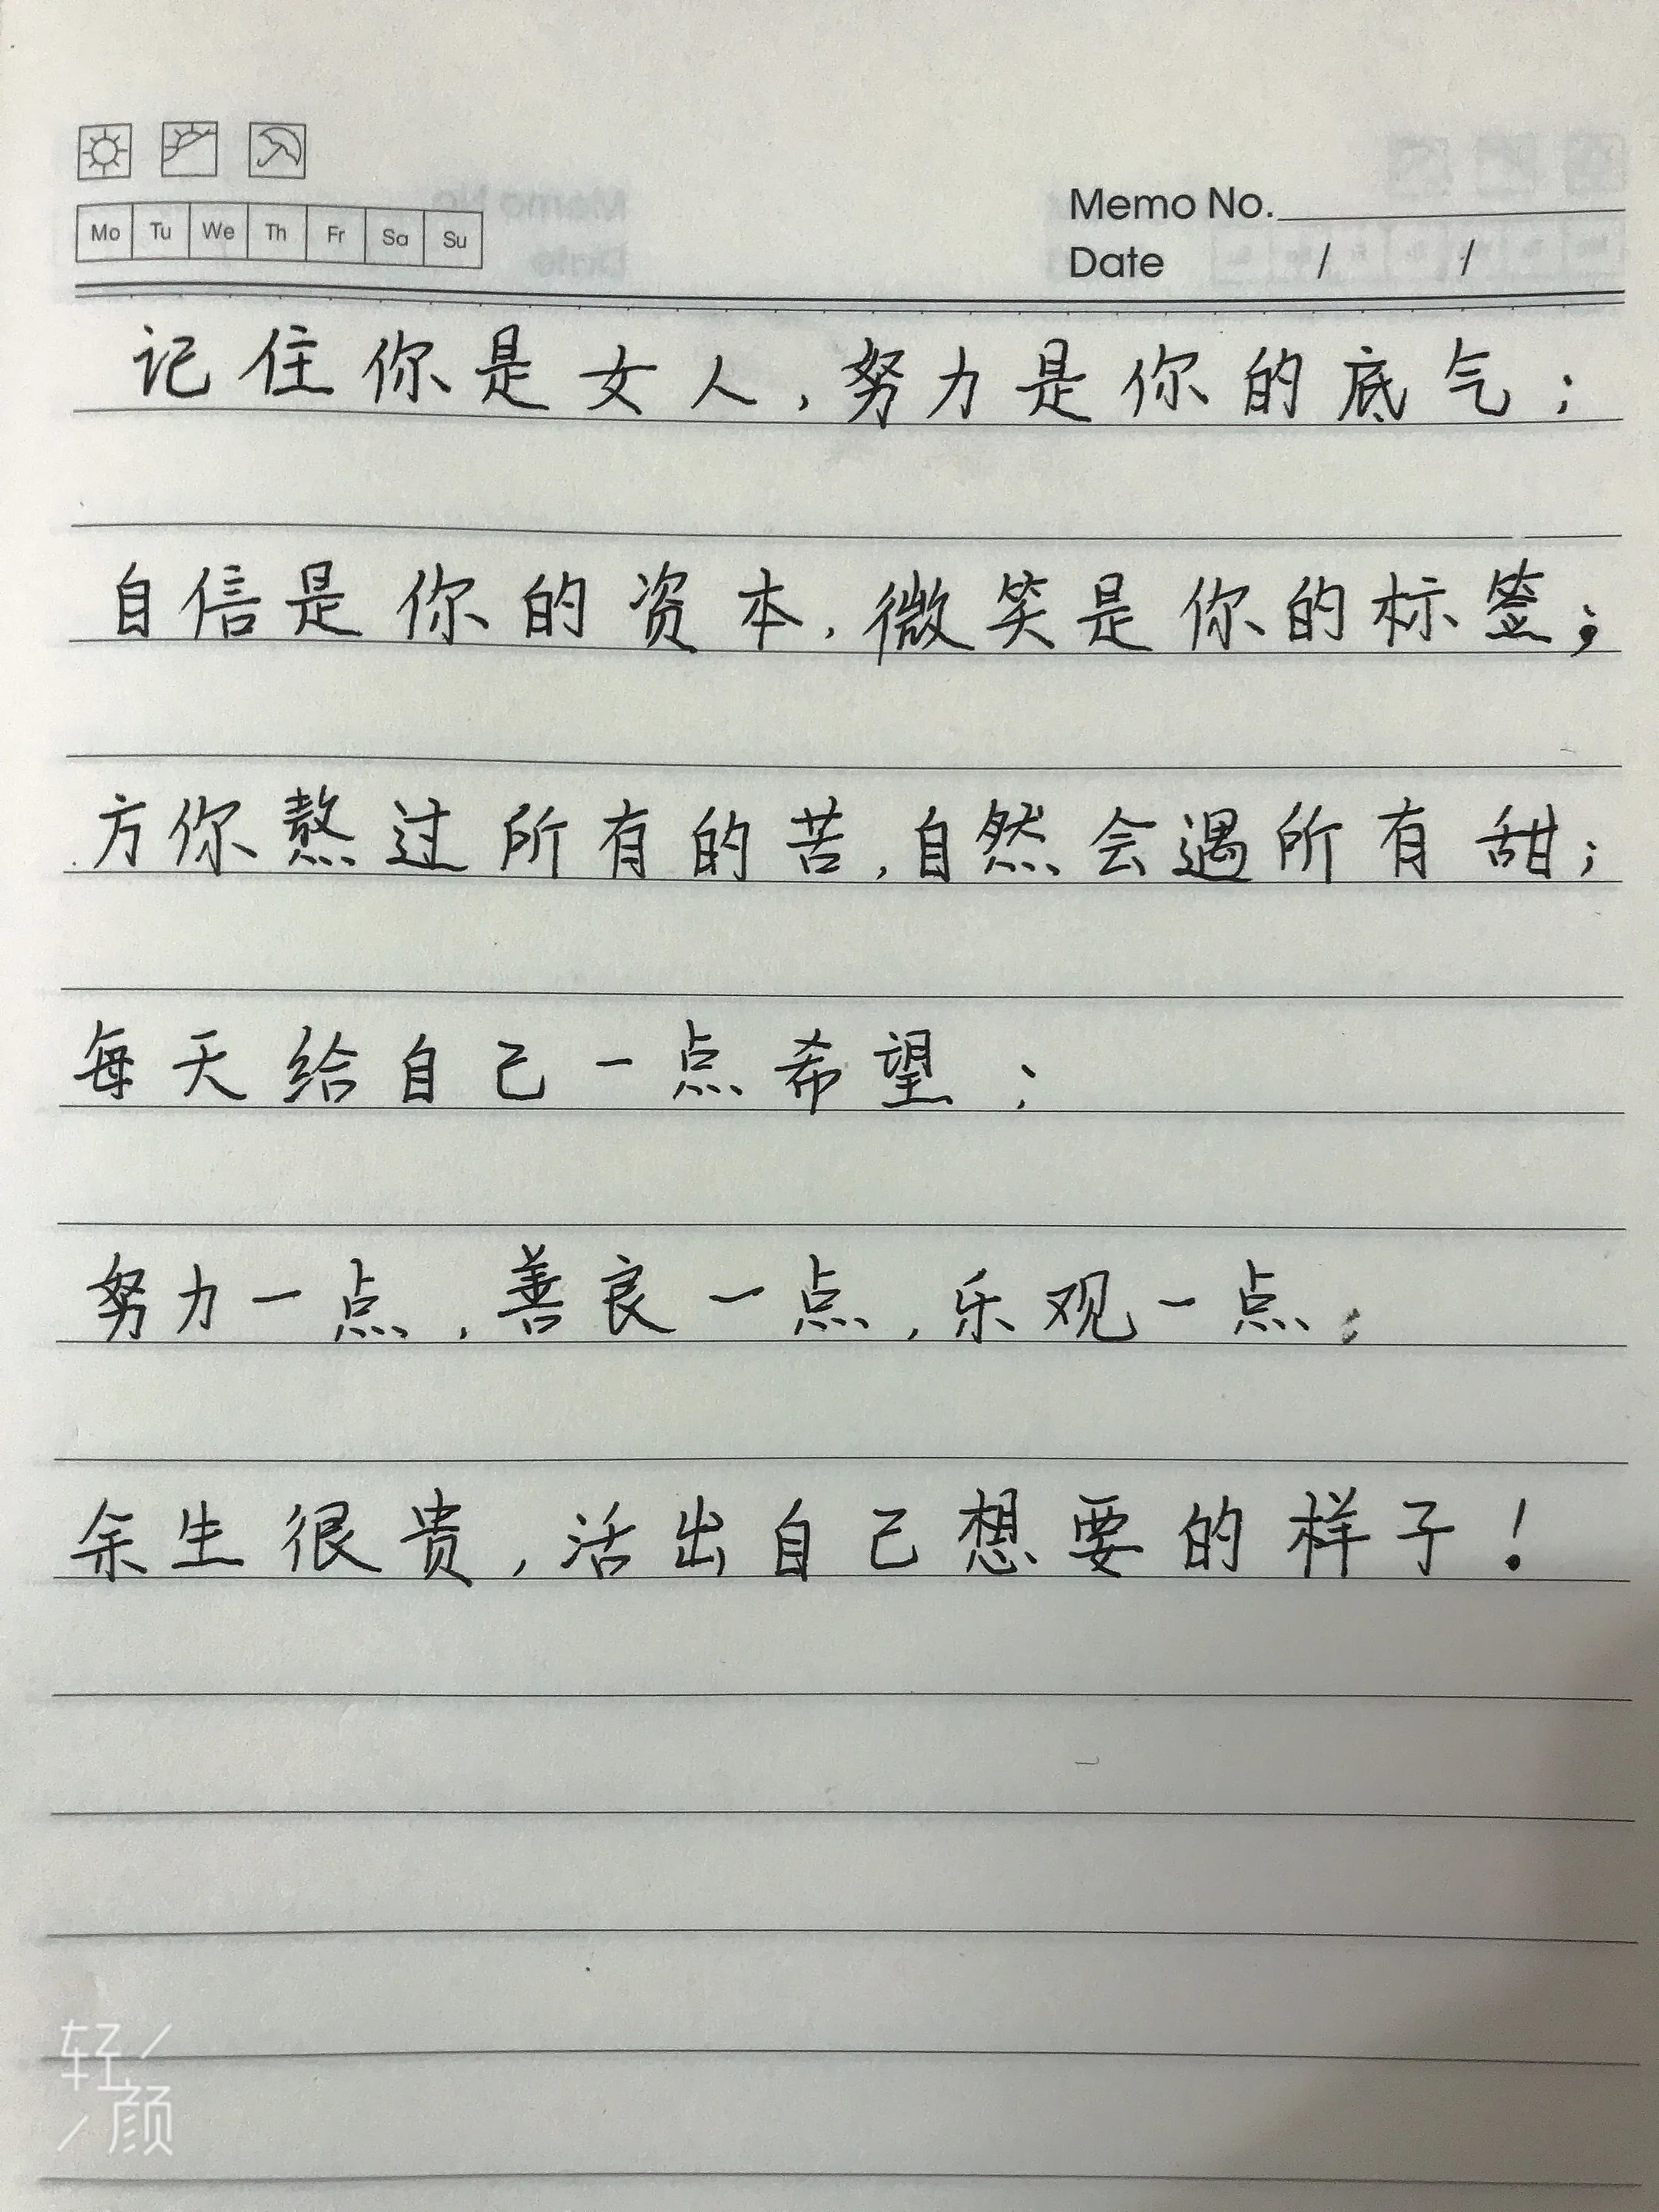 Mo Tu We Th Fr Sa Su
Memo No.
Date / /
记住你是女人,努力是你的底气;
自信是你的资本,微笑是你的标签;
方你熬过所有的苦,自然会遇所有甜;
每天给自己一点希望;
努力一点,善良一点,乐观一点;
余生很贵,活出自己想要的样子!
轻颜